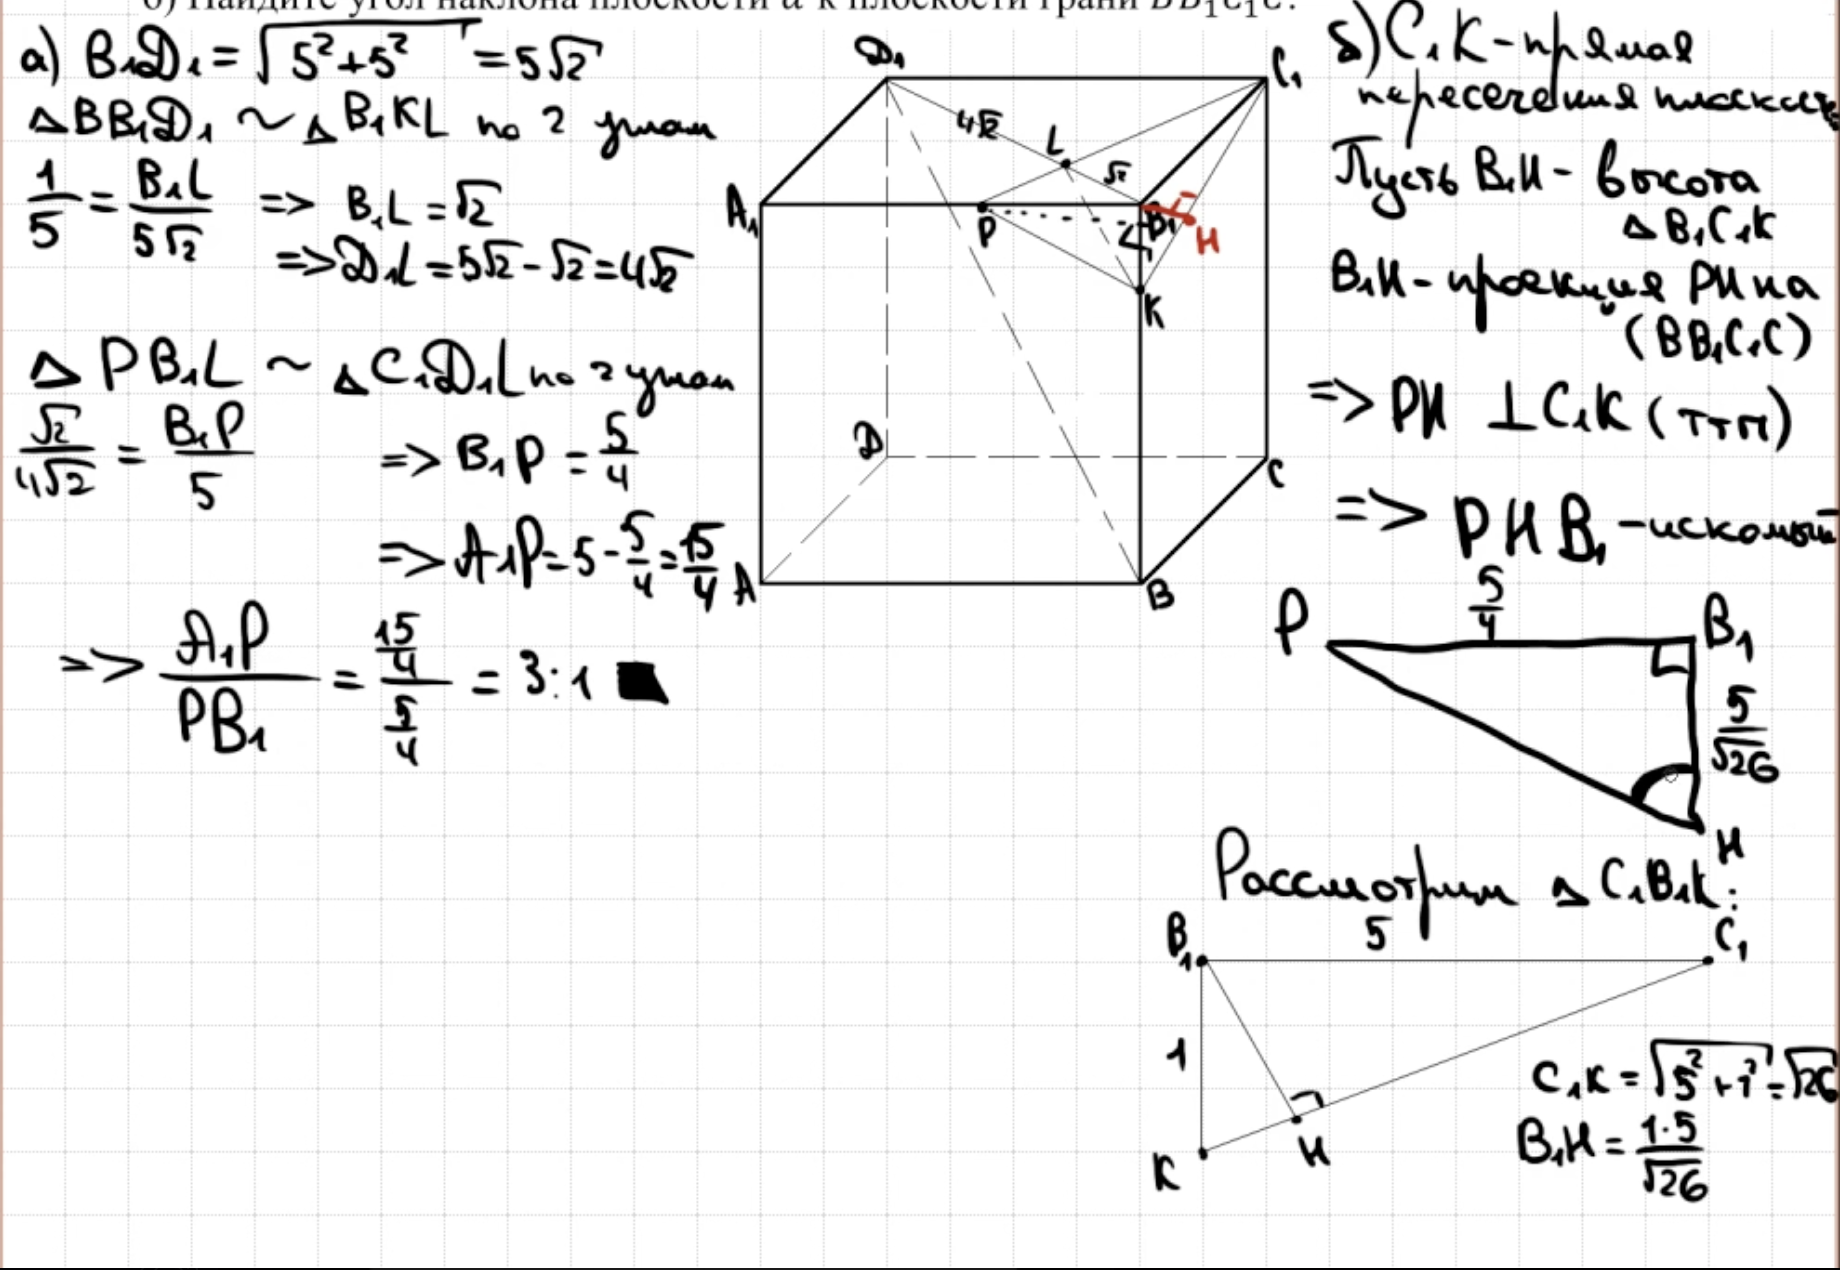 б) Найдите угол наклона плоскости α к плоскости грани BB₁C₁C.
а) B₁D₁ = √(5²+5²) = 5√2
△BB₁D₁ ~ △B₁KL по 2 углам
1/5 = B₁L/5√2 => B₁L = √2
=> D₁L = 5√2 - √2 = 4√2
△PB₁L ~ △C₁D₁L по 2 углам
√2/4√2 = B₁P/5 => B₁P = 5/4
=> A₁P = 5 - 5/4 = 15/4
=> A₁P/PB₁ = (15/4)/(5/4) = 3:1
D₁
C₁
4√2
L
√2
A₁
P
B₁
H
K
D
C
A
B
б) C₁K - прямая
пересечения плоскост
Пусть B₁H - высота
△B₁C₁K
B₁H - проекция PH на
(BB₁C₁C)
=> PH ⊥ C₁K (ттп)
=> PHB₁ - искомый
P
5/4
B₁
5/√26
H
Рассмотрим △C₁B₁K:
B₁
5
C₁
1
K
H
C₁K = √(5²+1²) = √26
B₁H = 1·5/√26